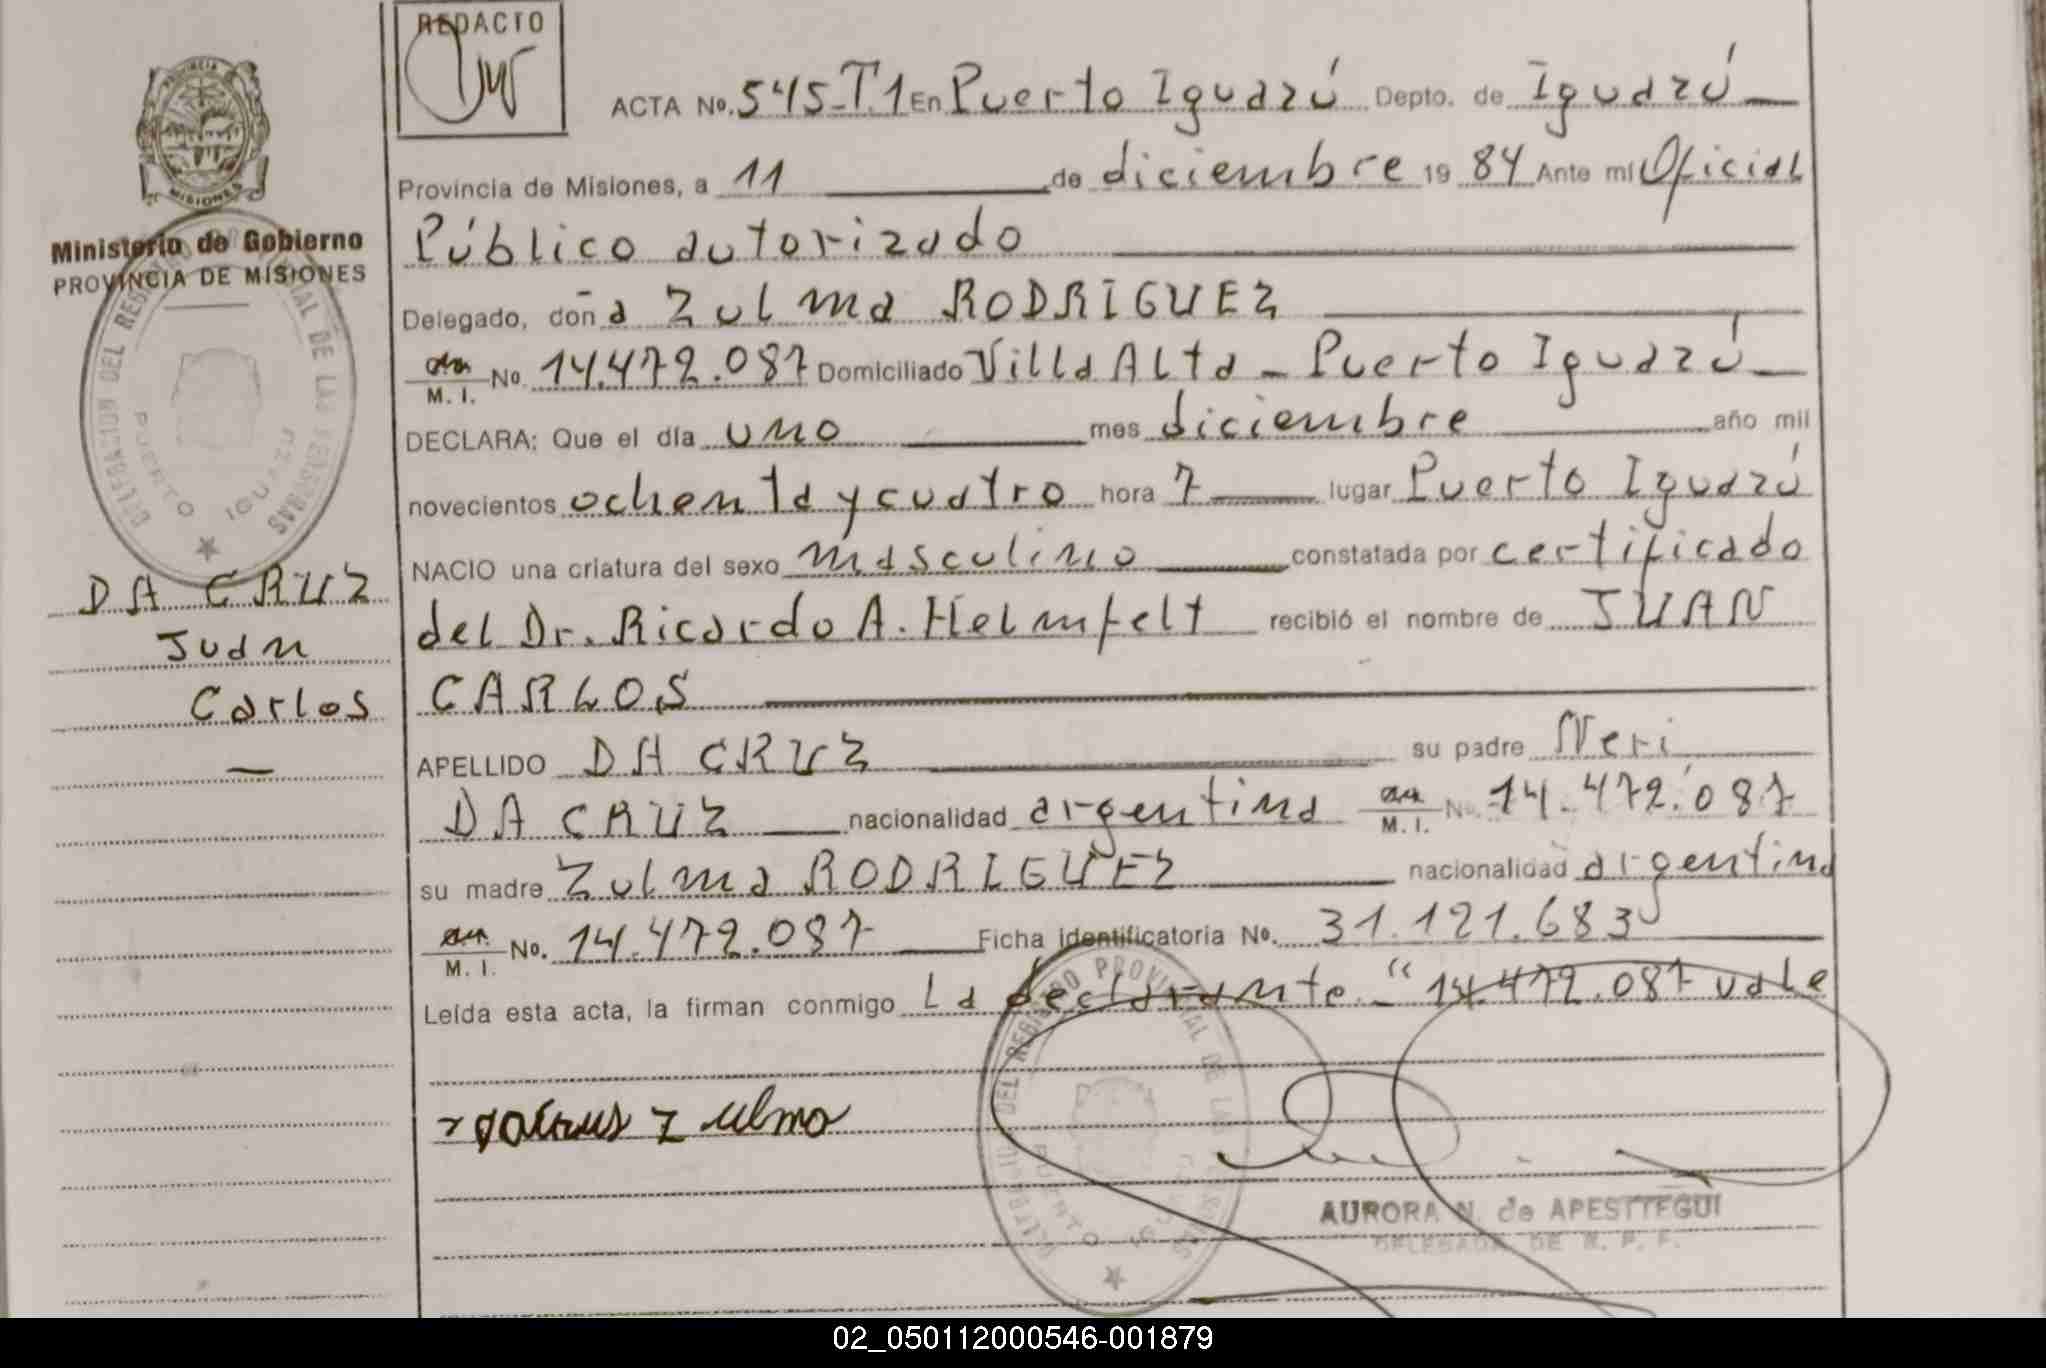 REDACTO
PROVINCIA
MISIONES
Ministerio de Gobierno
PROVINCIA DE MISIONES
DELEGACION DEL REGISTRO PROVINCIAL DE LAS PERSONAS
PUERTO IGUAZU
DA CRUZ
Juan
Carlos
—
ACTA No. 545-T.1 En Puerto Iguazú Depto. de Iguazú —
Provincia de Misiones, a 11 de diciembre 19 84 Ante mí Oficial
Público autorizado
Delegado, doña Zulma RODRIGUEZ
M. I. No. 14.472.087 Domiciliado Villa Alta - Puerto Iguazú —
DECLARA: Que el día uno mes diciembre año mil
novecientos ochenta y cuatro hora 7 lugar Puerto Iguazú
NACIO una criatura del sexo masculino constatada por certificado
del Dr. Ricardo A. Helmfelt recibió el nombre de JUAN
CARLOS
APELLIDO DA CRUZ su padre Neri
DA CRUZ nacionalidad argentina M. I. No. 14.472.087
su madre Zulma RODRIGUEZ nacionalidad argentina
M. I. No. 14.472.087 Ficha identificatoria No. 31.121.683
Leída esta acta, la firman conmigo La declarante. - "14.472.087 vale
Zulma
DEL REGISTRO PROVINCIAL DE LAS
PUERTO
AURORA N. de APESTTEGUI
DELEGADA DE R. P. P.
02_050112000546-001879